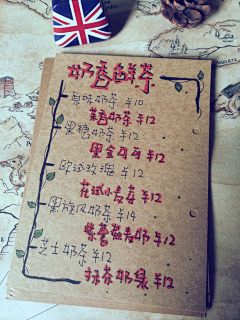 奶香鲜茶
原味奶茶 ¥10
茉香奶茶 ¥12
黑糖奶茶 ¥12
黑金可可 ¥12
欧式玫瑰 ¥12
花式小麦芽 ¥12
黑旋风奶茶 ¥14
紫薯燕麦奶 ¥12
芝士奶茶 ¥12
抹茶奶绿 ¥12